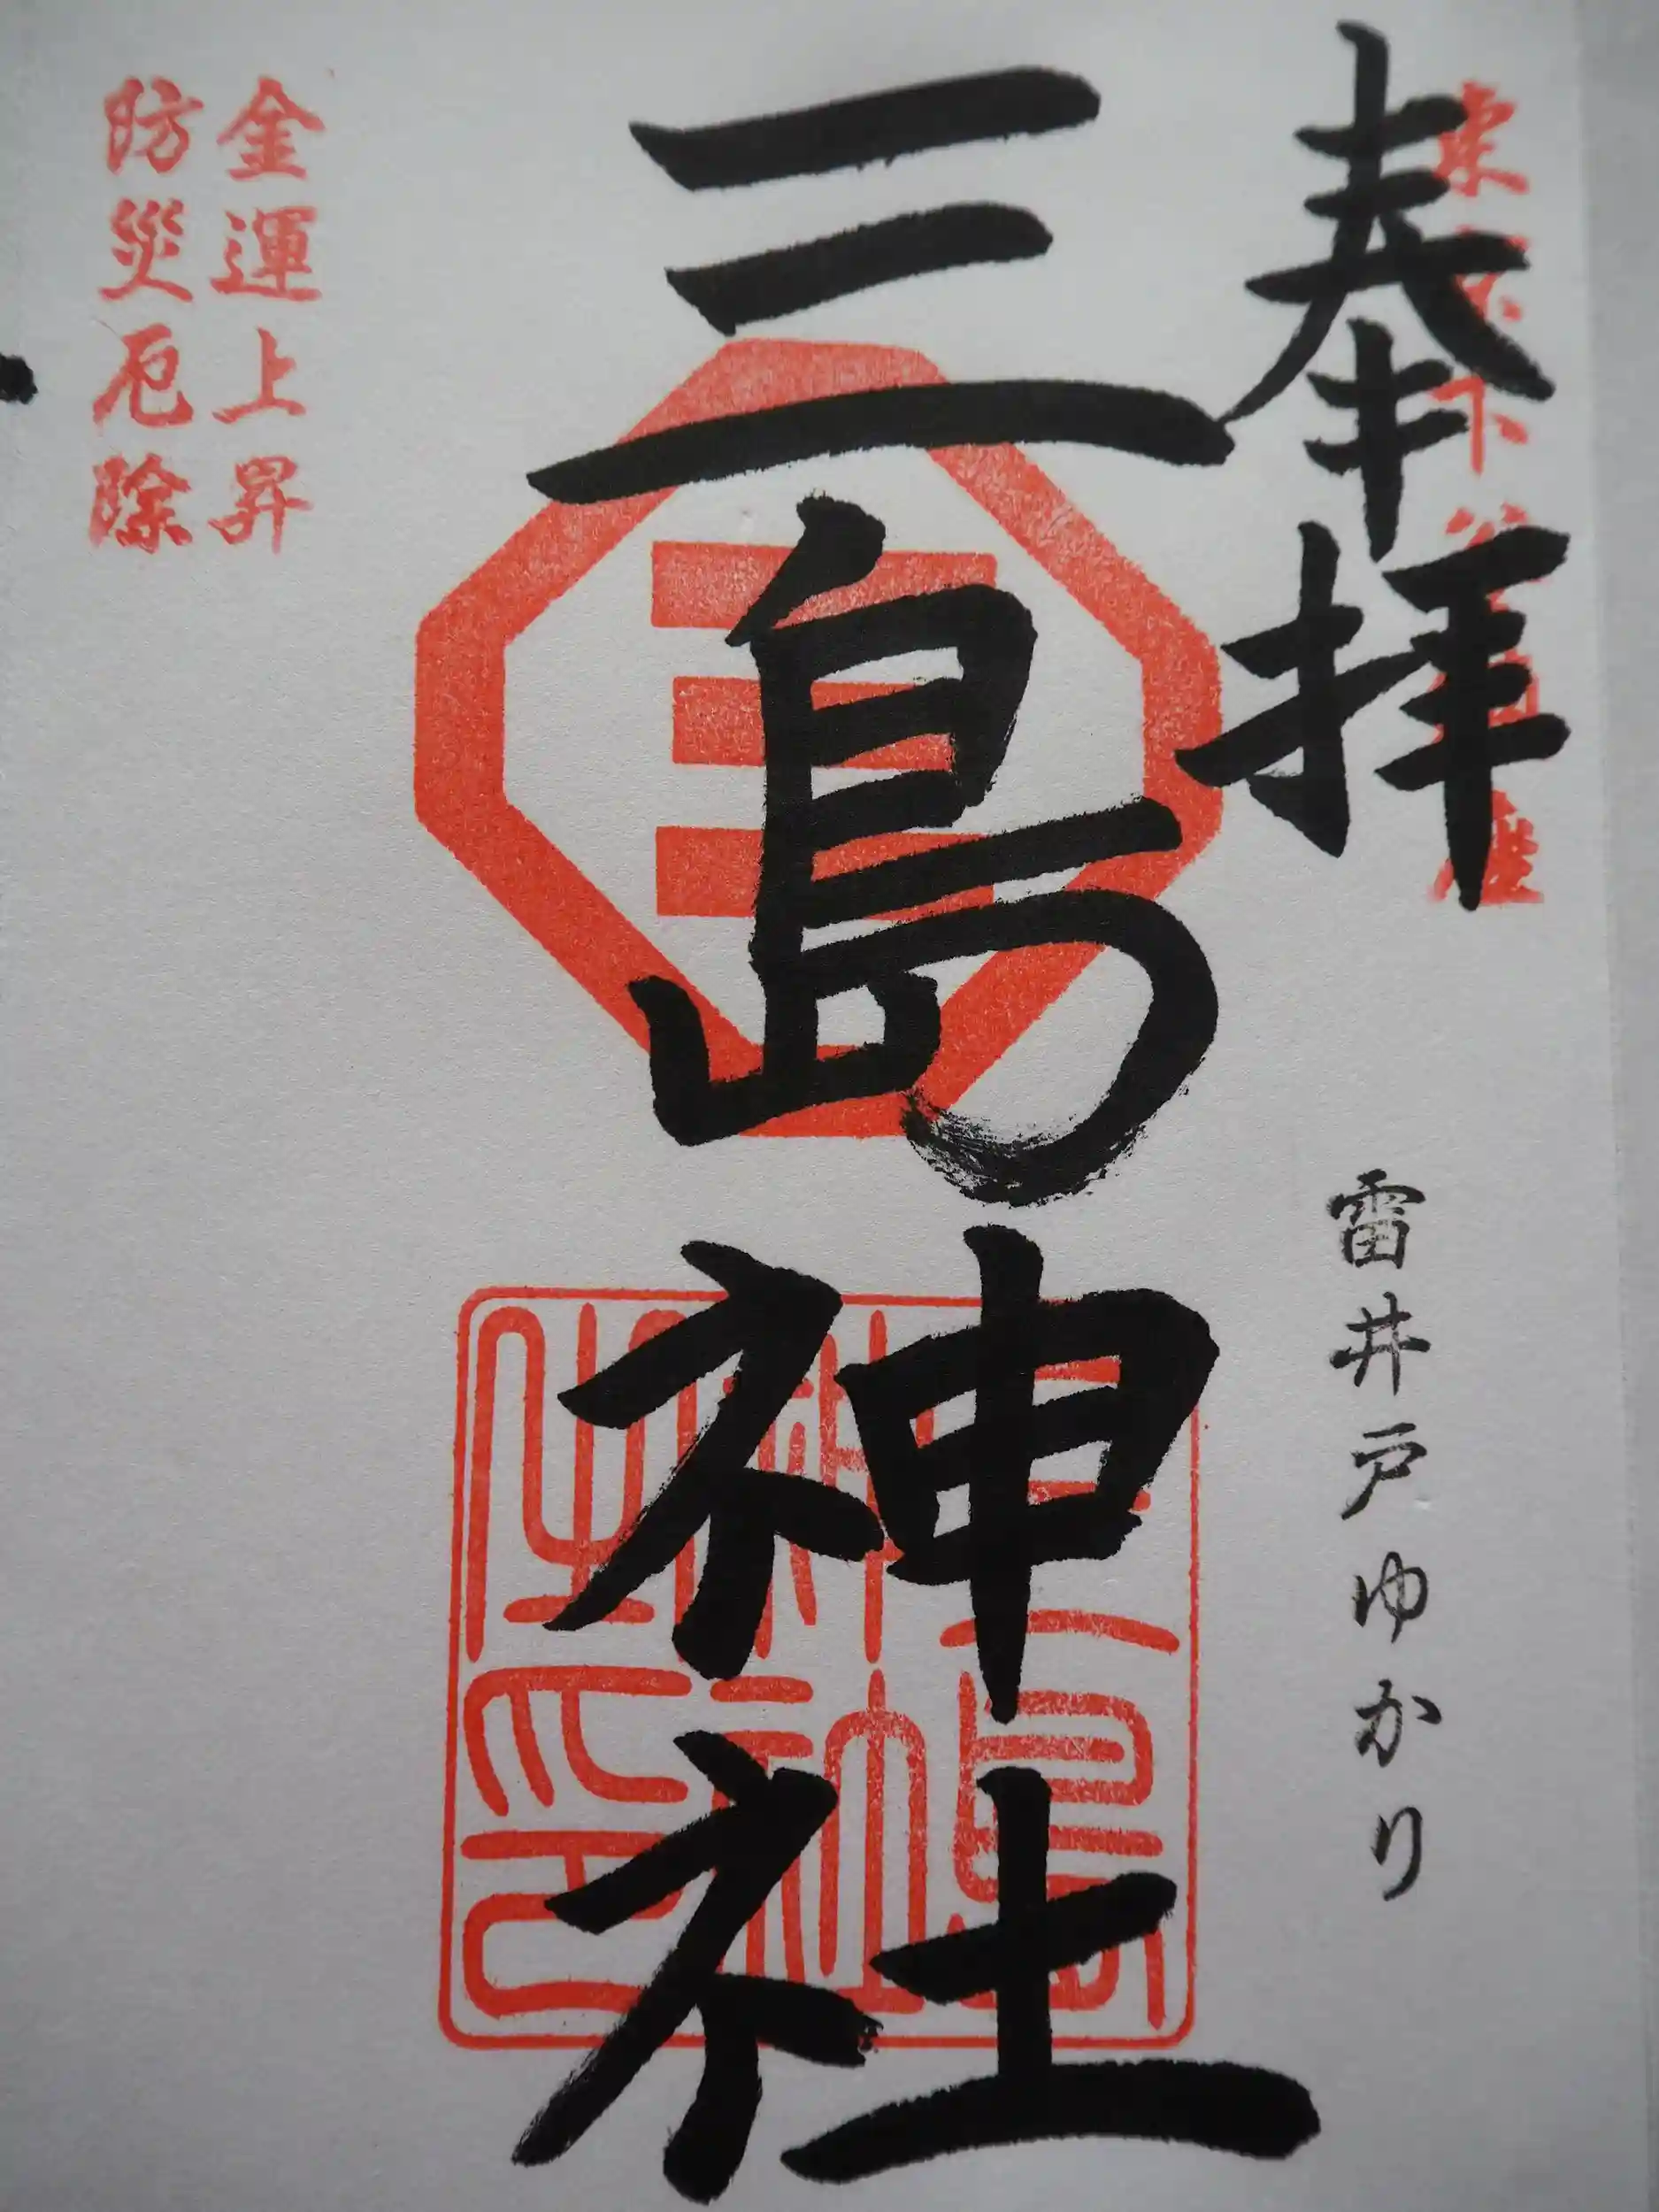 奉拝
雷井戸ゆかり
三島神社
金運上昇
防災厄除